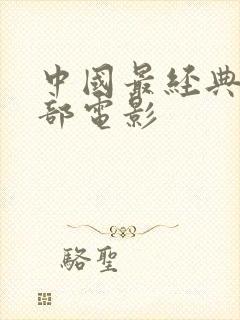 中國最經典
部電影
駱聖